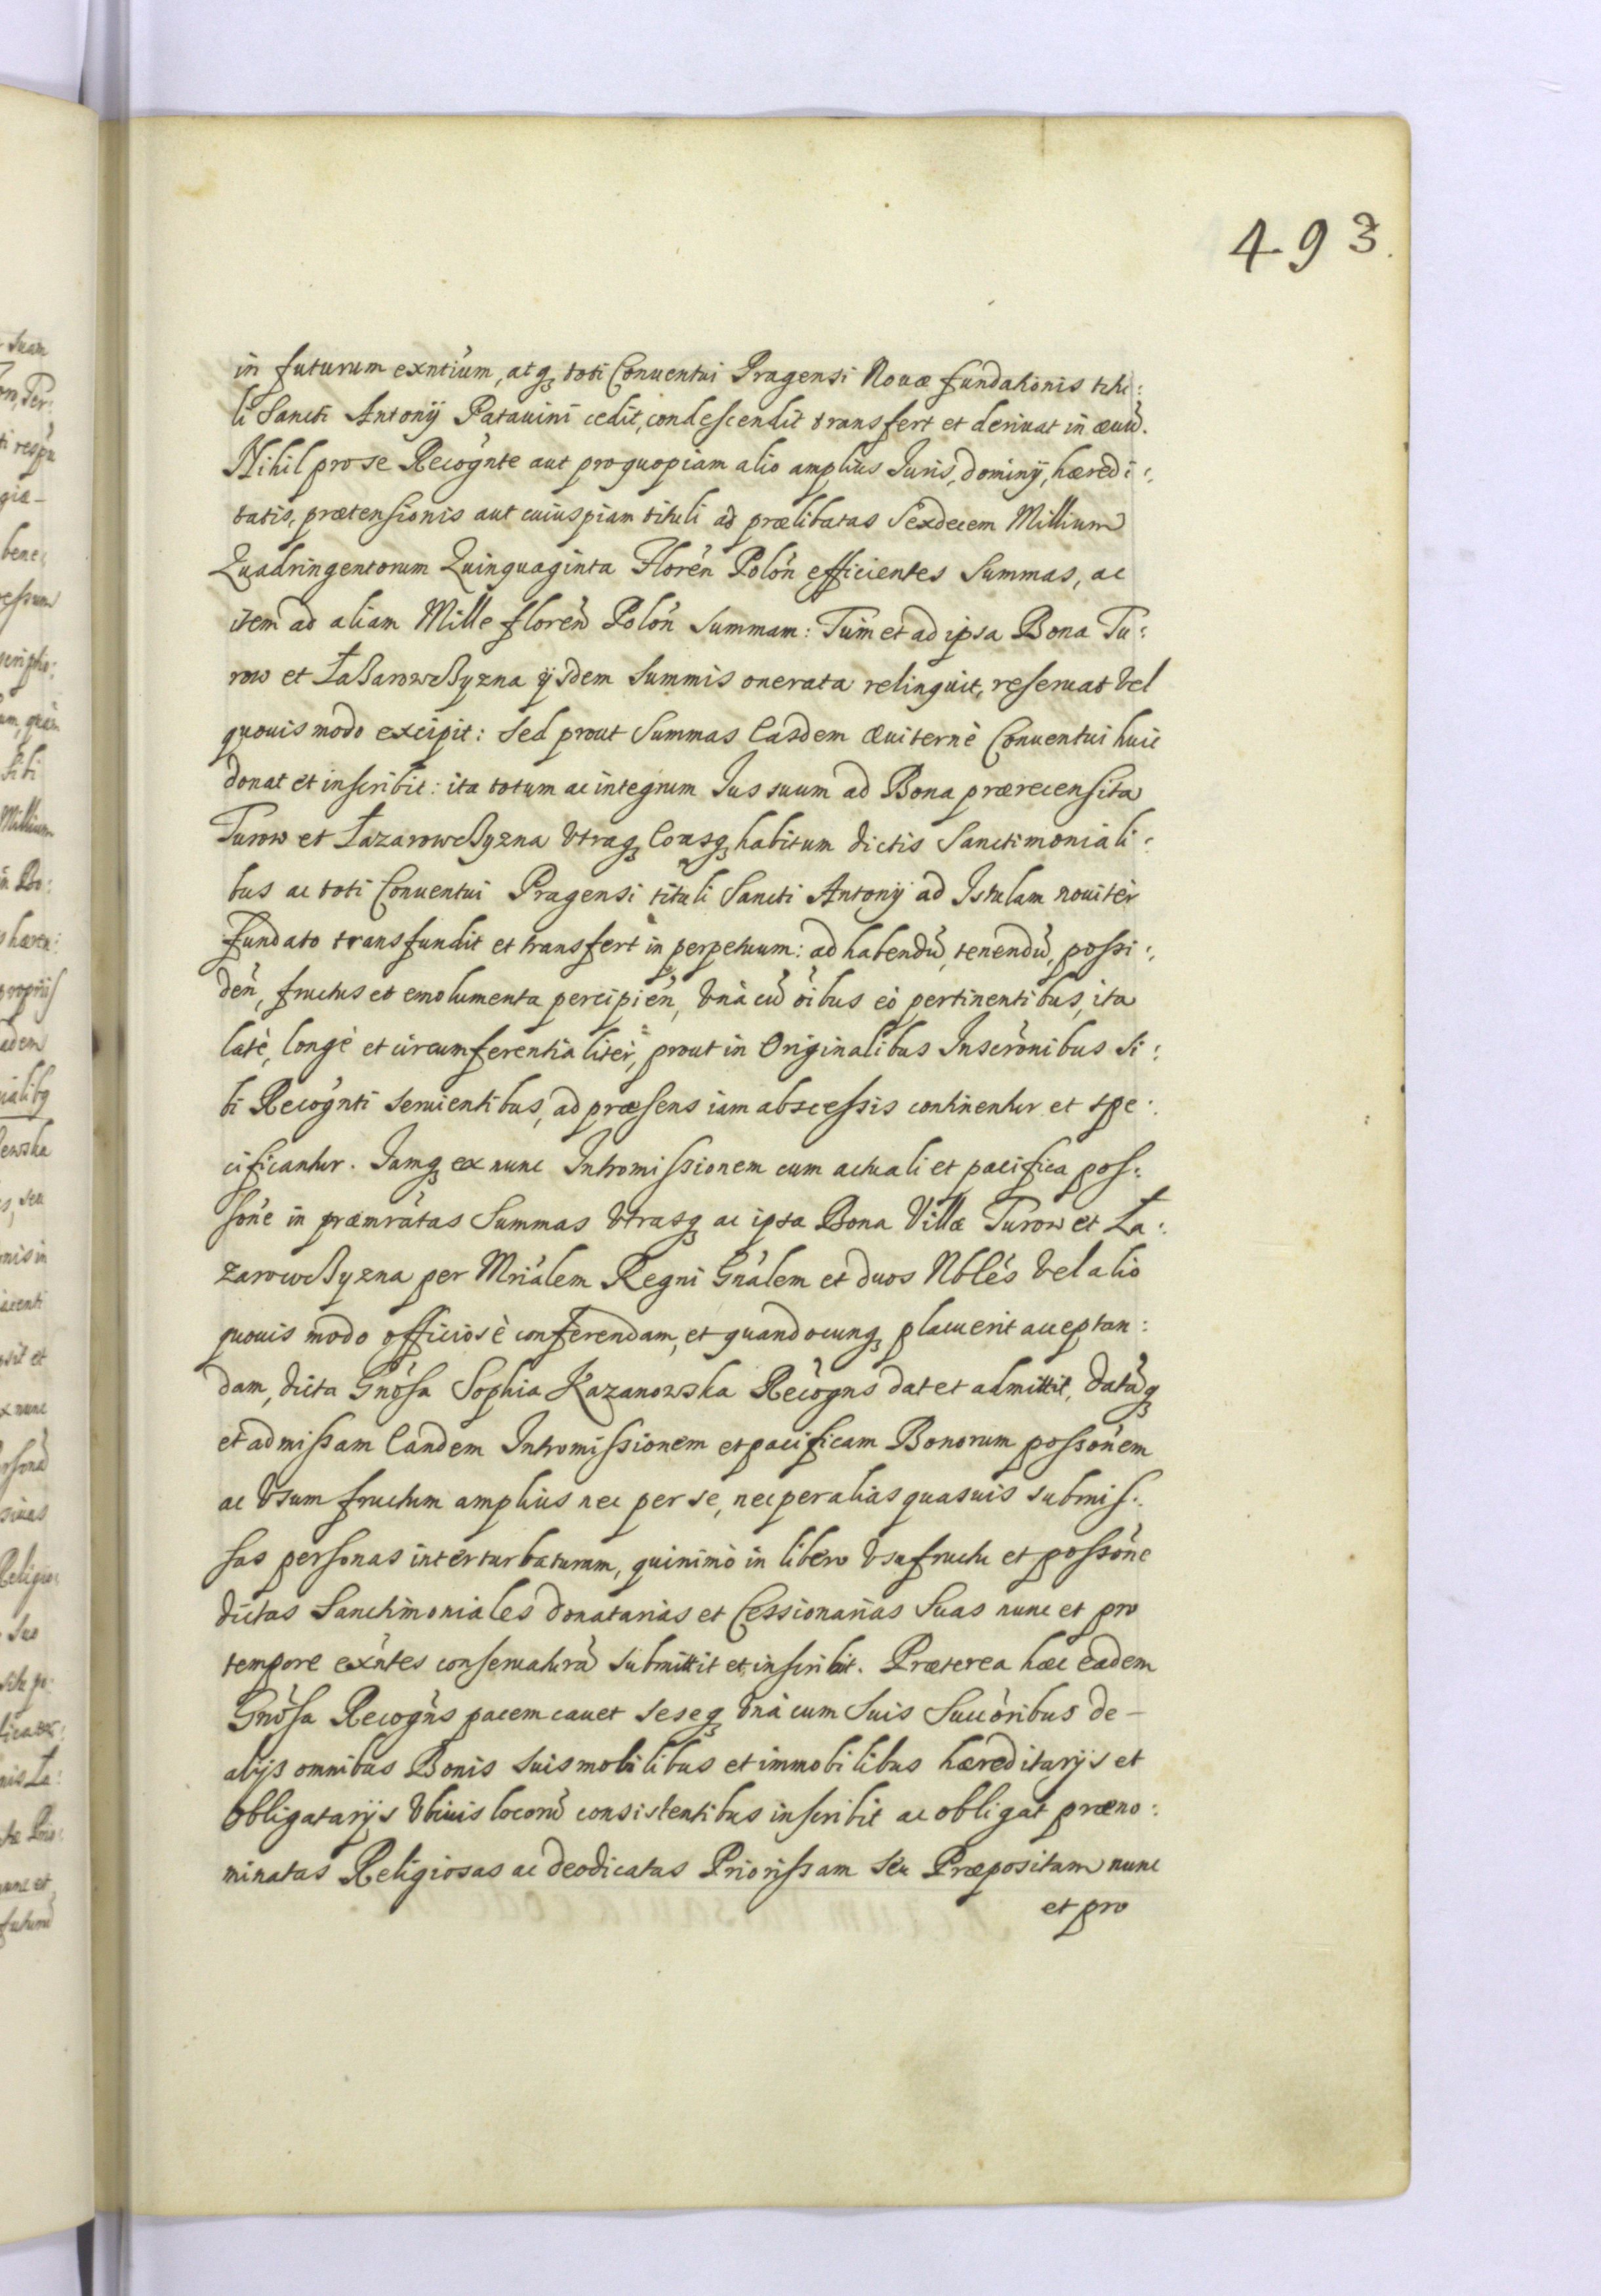 493.
in futurum exntiùm, atq₃ toti Conuentui Pragensi Nouæ fundationis titu:
li Sancti Antonÿ Patauini cedit, condescendit transfert et deriuat in æuũ.
Nihil pro se Recògnte aut pro quopiam alio amplius Juris, dominÿ, hæredi:
tatis, prætensionis aut cuiuspiam tituli ad prælibatas Sexdecem Millium
Quadringentorum Quinquaginta Florèn Polòn efficientes Summas, ac
item ad aliam Mille florèn Polòn Summam: Tùm et ad ipsa Bona Tu:
row et Łaßarowßyzna ÿsdem Summis onerata relinquit, reseruat vel
quouis modo excipit: sed prout Summas Easdem æuiternè Conuentui huic
donat et inscribit: ita totum ac integrum Jus suum ad Bona prærecensita
Turow et Łazarowßyzna vtraq₃ Eousq₃ habitum dictis Sanctimoniali:
bus ac toti Conuentui Pragensi tituli Sancti Antonÿ ad Istulam nouitèr
fundato transfundit et transfert in perpetuum: ad habendũ, tenendũ, possi:
dèn, fructus et emolumenta percipièn, vnà cũ òibus eò pertinentibus, ita
latè, longè et circumferentialitèr, prout in Originalibus Inscrònibus Si:
bi Recògnti seruientibus, ad præsens iam abscessis continentur et spe:
cificantur. Jamq₃ ex nunc Intromissionem cum actuali et pacifica pos:
sòne in præmràtas Summas vtrasq₃ ac ipsa Bona Villæ Turow et Ła:
zarowßyzna per Mriàlem Regni Gnàlem et duos Nblès vel alio
quouis modo officiosè conferendam, et quandocunq₃ placuerit acceptan:
dam, dicta Gnòsa Sophia Kazanowska Recògns dat et admittit, datãq₃
et admissam Eandem Intromissionem et pacificam Bonorum possònem
ac vsum fructum amplius nec per se, nec per alias quasuis submis:
sas personas interturbaturam, quinimò in libero vsufructu et possòne
dictas Sanctimoniales donatarias et Cessionarias Suas nunc et pro
tempore exǹtes conseruaturã submittit et inscribit. Præterea hæc eadem
Gnòsa Recògns pacem cauet seseq₃ vnà cum Suis Succòribus de-
alÿs omnibus Bonis suis mobilibus et immobilibus hæreditarÿs et
obligatarÿs vbiuis locorũ consistentibus inscribit ac obligat præno:
minatas Religiosas ac deodicatas Priorissam seu Præpositam nunc
et pro